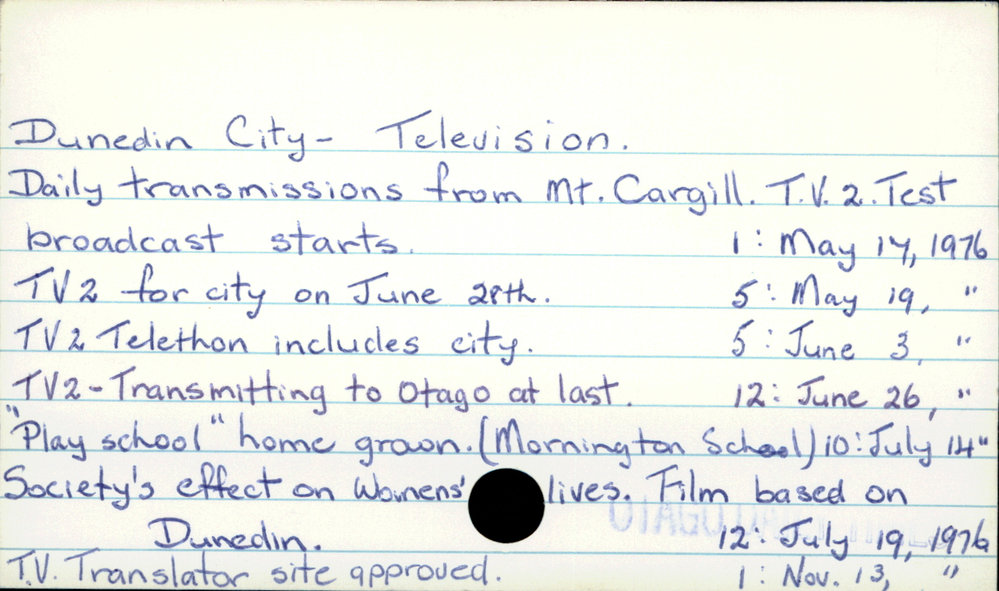 Dunedin City- Television.
Daily transmissions from Mt. Cargill. T.V. 2. Test
broadcast starts. 1: May 14, 1976
TV2 for city on June 28th. 5: May 19, "
TV2 Telethon includes city. 5: June 3, "
TV2-Transmitting to Otago at last. 12: June 26, "
"Play school" home grown. (Mornington School) 10: July 14 "
Society's effect on Womens' lives. Film based on
Dunedin. 12: July 19, 1976
T.V. Translator site approved. 1: Nov. 13, "